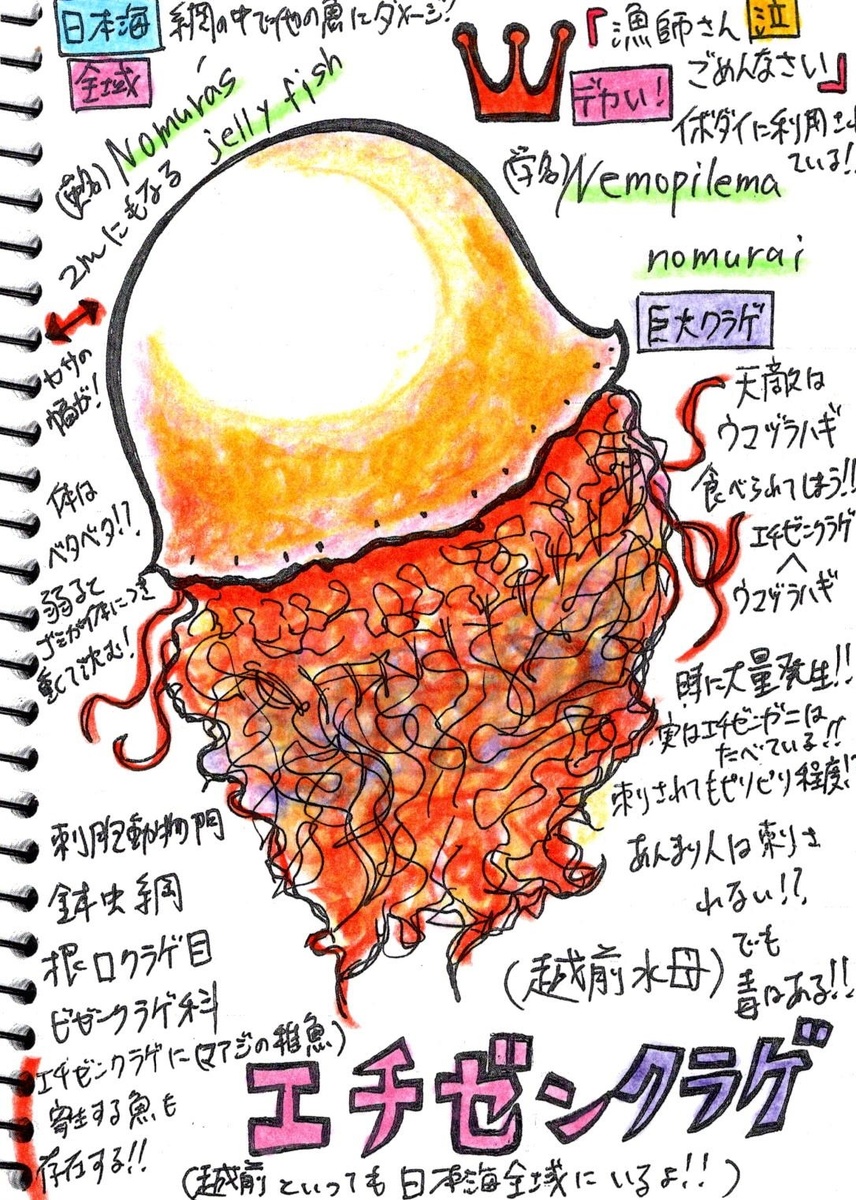 日本海
全域
網の中で他の魚にダメージ!
『漁師さん
ごめんなさい』
泣
デカい!
イボダイに利用され
ている!!
(英名)Nomura's jelly fish
(学名)Nemopilema
nomurai
巨大クラゲ
2mにもなる
カサの
幅が!
体は
ベタベタ!?
弱ると
ゴミが体につき
重くて沈む!
天敵は
ウマヅラハギ
食べられてしまう!!
エチゼンクラゲ
へ
ウマヅラハギ
時に大量発生!!
実はエチゼンガニは
たべている!!
刺されてもピリピリ程度!?
あんまり人は刺さ
れない!?
でも
毒はある!!
刺胞動物門
鉢虫綱
根口クラゲ目
ビゼンクラゲ科
エチゼンクラゲに(マアジの稚魚)
寄生する魚も
存在する!!
(越前水母)
エチゼンクラゲ
(越前といっても日本海全域にいるよ!!)